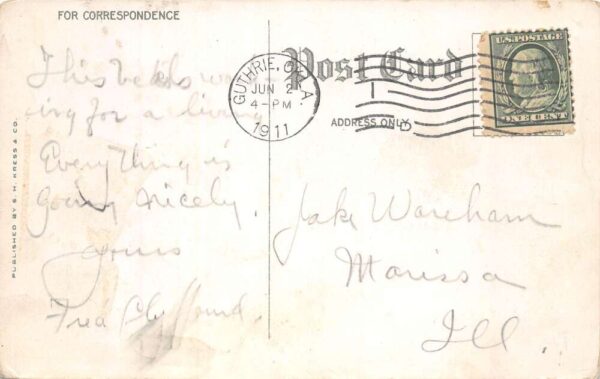 FOR CORRESPONDENCE
Post Card
ADDRESS ONLY
U.S. POSTAGE
ONE CENT
GUTHRIE, OKLA.
JUN 2
4-PM
1911
This beats
ing for a living
Everything is
going nicely.
yours
Fred
Jake Wareham
Marissa
Ill.
PUBLISHED BY S. H. KRESS & CO.